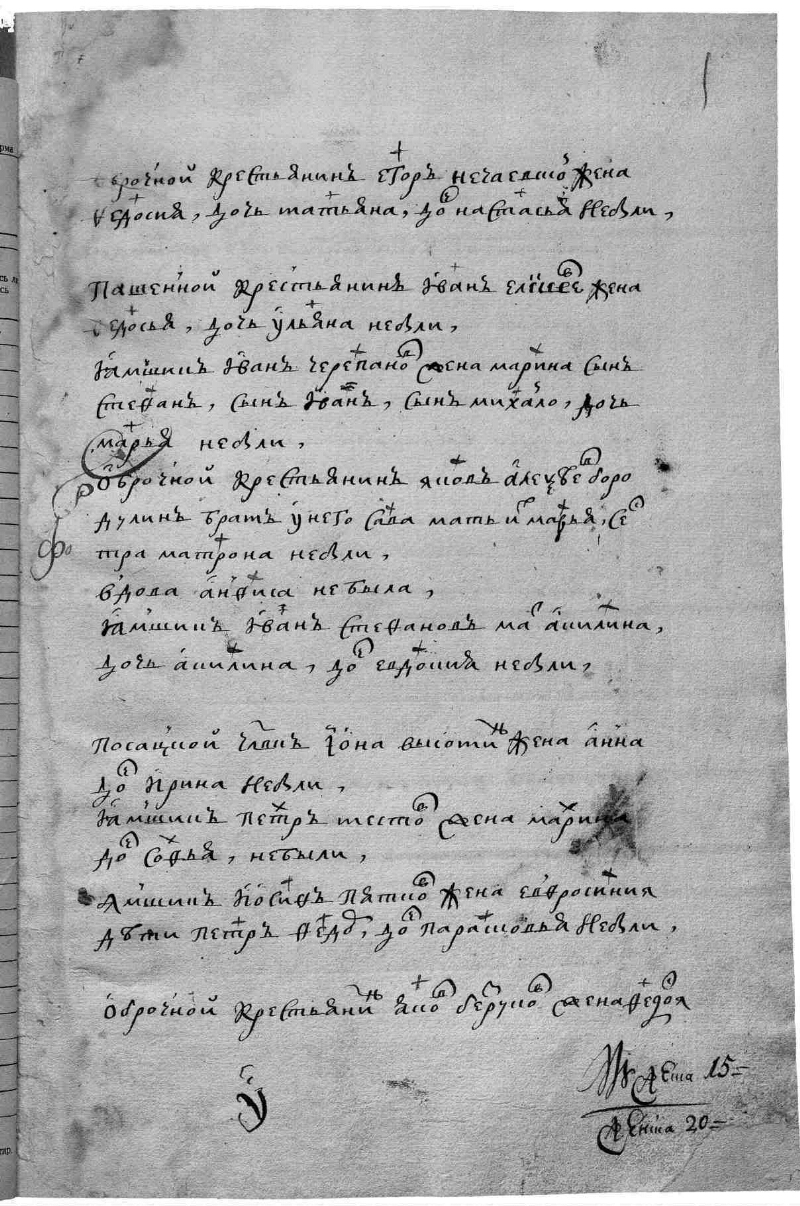 оброчной крестьянинъ егоръ нечаевшо жена
федосия, дочь татьяна, до настасья небыли,
Пашенной крестьянинъ иванъ елисеевъ жена
федосья, дочь ульяна небыли,
ямщикъ иванъ черепановъ жена марина сынъ
стефанъ, сынъ иванъ, сынъ михаило, дочь
марья небыли,
оброчной крестьянинъ яковъ алеѯѣевъ боро
дулинъ братъ у него сава мать и марья, се
тра матрона небыли,
вдова анфиса небыла,
ямщикъ иванъ стефановъ ма акилина,
дочь акилина, до евдокия небыли,
посацкой члвкъ иона высоти жена анна
до ирина небыли,
ямщикъ петръ шестовъ жена марина
до софья, небыли,
ямщикъ иосифъ пятковъ жена евфросиния
дѣти петръ федо, до парасковья небыли,
оброчной крестьянинъ яковъ жена федося
У
15
20